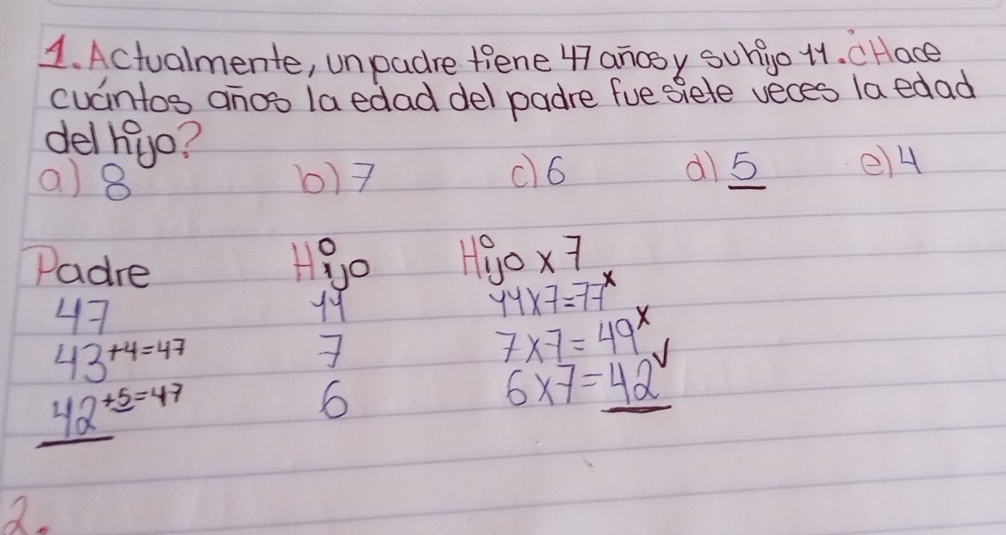 1. Actualmente, un padre tiene 47 años y su hijo 11. ¿Hace
cuántos años la edad del padre fue siete veces la edad
del hijo?
a) 8 b) 7 c) 6 d) 5 e) 4
Padre Hijo Hijo x 7
47 11 11x7=77 x
43 +4=47 7 7x7=49 x
42 +5=47 6 6x7=42 ✓
2.